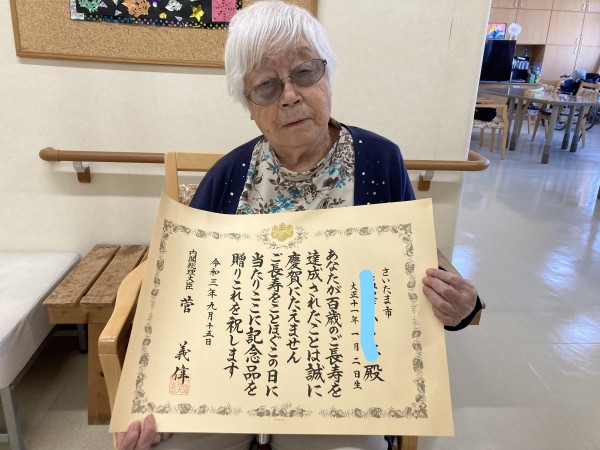 さいたま市
殿
大正十一年一月二日生
あなたが百歳のご長寿を
達成されたことは誠に
慶賀にたえません
ご長寿をことほぎこの日に
当たりここに記念品を
贈りこれを祝します
令和三年九月十五日
内閣総理大臣 菅 義偉